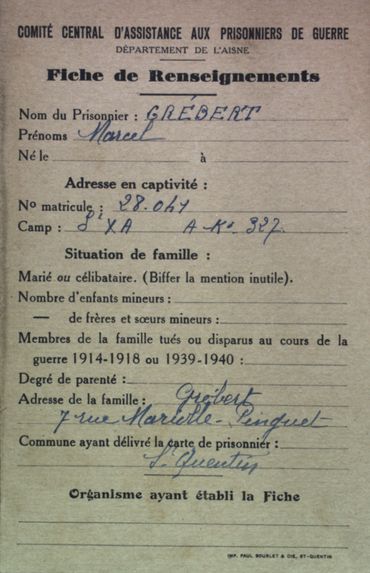 COMITÉ CENTRAL D'ASSISTANCE AUX PRISONNIERS DE GUERRE
DÉPARTEMENT DE L'AISNE
Fiche de Renseignements
Nom du Prisonnier : GRÉBERT
Prénoms Marcel
Né le à
Adresse en captivité :
No matricule : 28.041
Camp : XA A Ko 327.
Situation de famille :
Marié ou célibataire. (Biffer la mention inutile).
Nombre d'enfants mineurs :
— de frères et sœurs mineurs :
Membres de la famille tués ou disparus au cours de la
guerre 1914-1918 ou 1939-1940 :
Degré de parenté :
Adresse de la famille : Grébert
7 rue Marville-Pinguet
Commune ayant délivré la carte de prisonnier :
St Quentin
Organisme ayant établi la Fiche
IMP. PAUL BOURLET & CIE, ST-QUENTIN